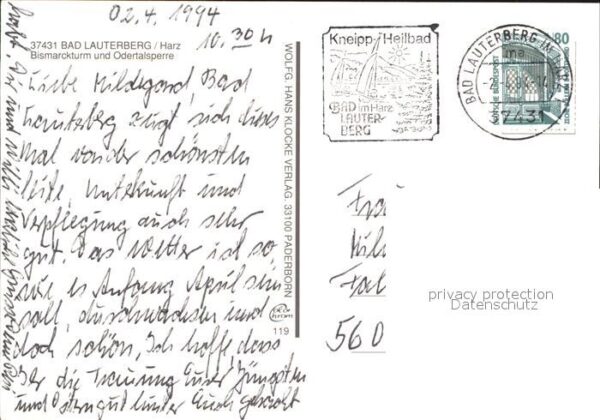 02.4.1994
10.30 h
37431 BAD LAUTERBERG / Harz
Bismarckturm und Odertalsperre
Liebe Hildegard, Bad
Lauterberg zeigt sich dieses
Mal von der schönsten
Seite, Unterkunft und
Verpflegung auch sehr
gut. Das Wetter ist so,
wie es Anfang April sein
soll, durchwachsen und
doch schön, Ich hoffe, dass
Ihr die Trauung Eurer Jüngsten
und Ostern gut hinter Euch gebracht
habt. Dir und
WOLFG. HANS KLOCKE VERLAG, 33100 PADERBORN
119
Kneipp-Heilbad
BAD im Harz
LAUTER-
BERG
BAD LAUTERBERG IM HARZ
37431
80
DEUTSCHE BUNDESPOST
Fra
560
privacy protection
Datenschutz